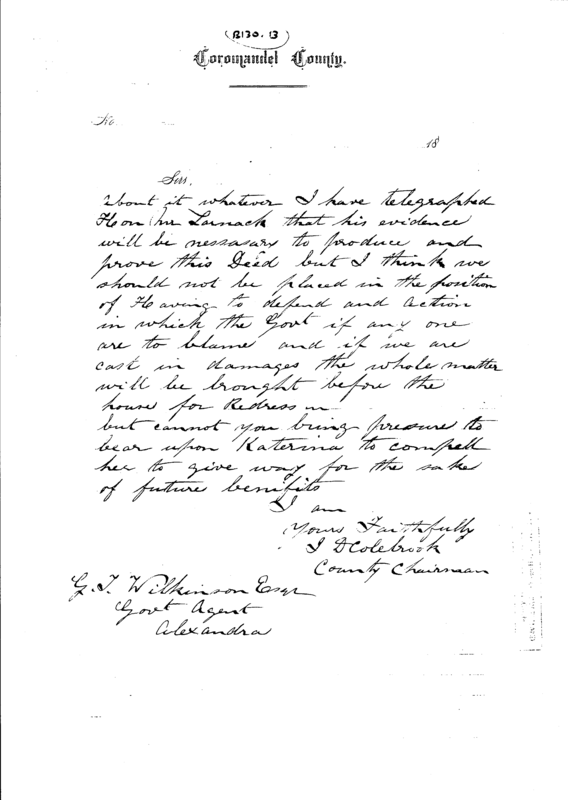 R130. 13
Coromandel County.
No.
18
Sir,
about it whatever I have telegraphed
Hon Mr Larnack that his evidence
will be nessasary to produce and
prove this Deed but I think we
should not be placed in the position
of Having to defend and action
in which the Govt if any one
are to blame and if we are
cast in damages the whole matter
will be brought before the
house for Redress
but cannot you bring presure to
bear upon Katerina to compell
her to give way for the sake
of future benifits
I am
Yours Faithfully
J D Colebrook
County Chairman
G. T. Wilkinson Esqr
Govt Agent
Alexandra